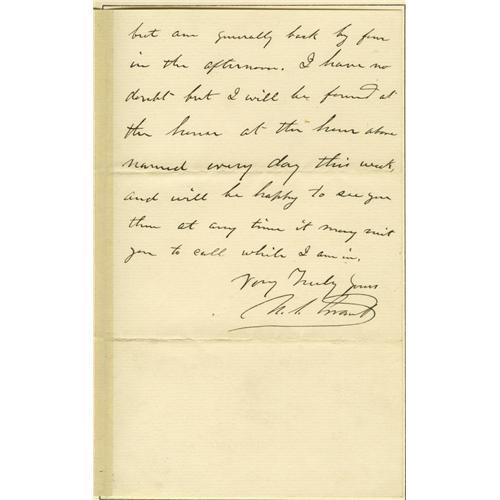 but am generally back by four
in the afternoon. I have no
doubt but I will be found at
the house at the hour above
named every day this week,
and will be happy to see you
then at any time it may suit
you to call while I am in.
Very Truly Yours
U. S. Grant